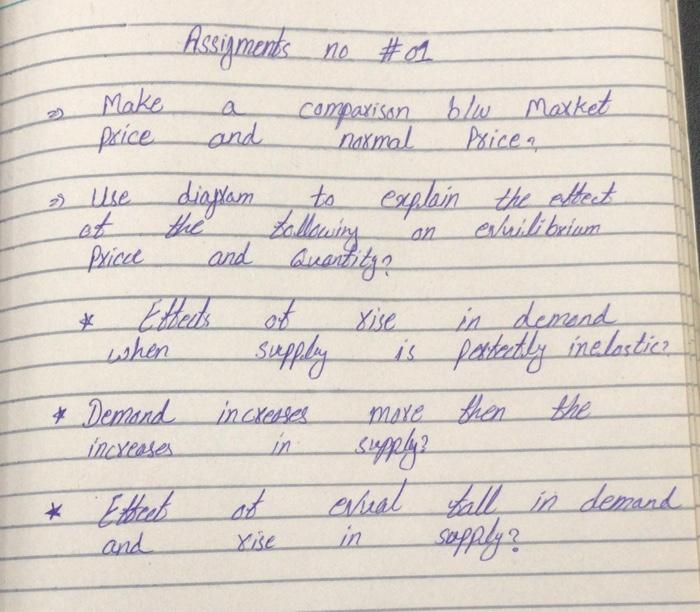 Assigments no #01
⇒ Make a comparison b/w Market
price and normal Price?
⇒ Use diagram to explain the effect
of the following on equilibrium
Pricce and Quantity?
* Effects of rise in demand
when supply is perfectly inelastic?
* Demand increases more then the
increases in supply?
* Effect of equal fall in demand
and rise in supply?